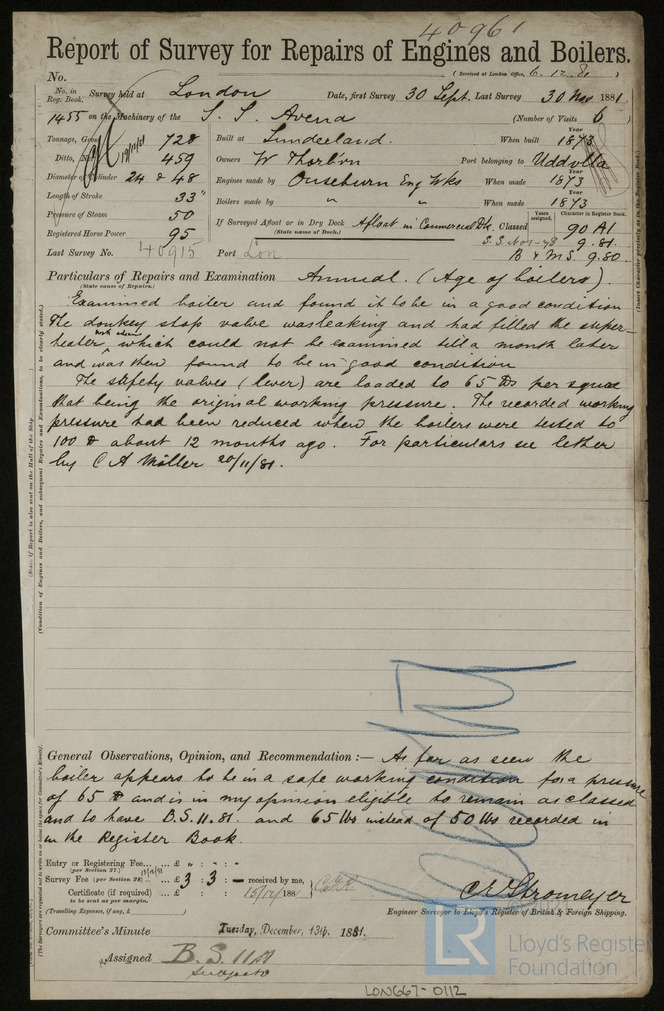 40961
Report of Survey for Repairs of Engines and Boilers.
(Received at London Office, 6.12.81)
No.
No. in Reg. Book. Survey held at London Date, first Survey 30 Sept. Last Survey 30 Nov 1881.
1455 on the Machinery of the S. S. Avena (Number of Visits 6)
Tonnage, Gross 728 Built at Sunderland. When built Year 1873
Ditto, Net 459 Owners W Thorbvn Port belonging to Uddvlla
Diameter of Cylinder 24 & 48 Engines made by Ouseburn Eng Wks When made Year 1873
Length of Stroke 33" Boilers made by " " When made Year 1873
Pressure of Steam 50
Registered Horse Power 95 If Surveyed Afloat or in Dry Dock Afloat in Commercial Dk. Classed 90 A1
(State name of Dock.)
Years assigned. Character in Register Book.
S.S. No1-78 9.81.
B & M S. 9.80
Last Survey No. 40915 Port Lon
Particulars of Repairs and Examination Annual. (Age of boilers).
(State cause of Repairs.)
Examined boiler and found it to be in a good condition
The donkey stop valve was leaking and had filled the super-
heater, which could not be examined till a month later
and was then found to be in good condition
The safety valves (lever) are loaded to 65 lbs per square
that being the original working pressure. The recorded working
pressure had been reduced when the boilers were tested to
100 lb about 12 months ago. For particulars see letter
by C A Möller 20/11/81.
General Observations, Opinion, and Recommendation :— As far as seen the
boiler appears to be in a safe working condition for a pressure
of 65 lb and is in my opinion eligible to remain as classed
and to have B.S. 11.81. and 65 lbs instead of 50 lbs recorded in
in the Register Book.
Entry or Registering Fee... ... £ " : " :
(per Section 27.)
Survey Fee (per Section 28) ... £ 3 : 3 : — received by me,
Certificate (if required) ... £ : : 15/12/188
to be sent as per margin.
(Travelling Expenses, if any, £ )
C E Stromeyer
Engineer Surveyor to Lloyd's Register of British & Foreign Shipping.
Committee's Minute Tuesday, December, 13th, 1881.
Assigned B.S. 11.81
LR Lloyd's Register Foundation
LON667-0112